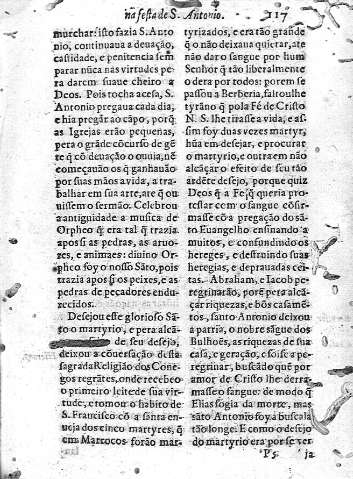 na festa de S. Antonio. 117
murchar: isto fazia S. Anto
nio, continuaua a deuação,
castidade, e penitencia sem
parar nũca nas virtudes pe
ra darem suaue cheiro a
Deos. Pois tocha acesa, S.
Antonio pregaua cada dia,
e hia pregár ao cãpo, porq̃
as Igrejas erão pequenas,
pera o grãde cõcurso de gẽ
te q̃ cõ deuação o ouuia, nẽ
começauão os q̃ ganhauão
por suas mãos a vida, a tra
balhar em sua arte, atè q̃ ou
uissem o sermão. Celebrou
a antiguidade a musica de
Orpheo q̃ era tal q̃ trazia
apos si as pedras, as aruo-
res, e animaes: diuino Or-
pheo foy o nosso Sãto, pois
trazia apos si os peixes, e as
pedras de pecadores endu-
recidos.
Desejou esse glorioso Sã-
to o martyrio, e pera alcã-
de seu desejo,
deixou a cõuersação desta
sagrada Religião dos Cone-
gos regrãtes, onde recebeo
o primeiro leite de sua vir-
tude, e tomou o habito de
S. Francisco cõ a santa en-
ueja dos cinco martyres, q̃
em Marrocos forão mar-
tyrizados, e era tão grande
q̃ o não deixaua quietar, ate
não dar o sangue por hum
Senhor q̃ tão liberalmente
o dera por todos: porem se
passou a Berberia, faltoulhe
tyrãno q̃ pola Fé de Cristo
N. S. lhe tirasse a vida, e as
sim foy duas vezes martyr,
hũa em desejar, e procurar
o martyrio, e outra em não
alcãçar o efeito de seu tão
ardẽte desejo, porque quiz
Deos q̃ a Fé, q̃ queria pro-
testar cem o sangue cõfir-
masse cõ a pregação do sã-
to Euangelho ensinando a
muitos, e confundindo os
hereges, e destruindo suas
heregias, e deprauadas cei-
tas. Abraham, e Iacob pe-
regrinarão, porẽ pera alcã-
çar riquezas, e bõs casamẽ-
tos, santo Antonio deixou
a patria, o nobre sãgue dos
Bulhões, as riquezas de sua
casa, e geração, e soise a pe-
regrinar, buscãdo quẽ por
amor de Cristo lhe derra-
masse o sangue: de modo q̃
Elias fogia da morte, mas
sãto Antonio foy a buscala
tão longe. E como o desejo
do martyrio era por se ver
P 5 ja